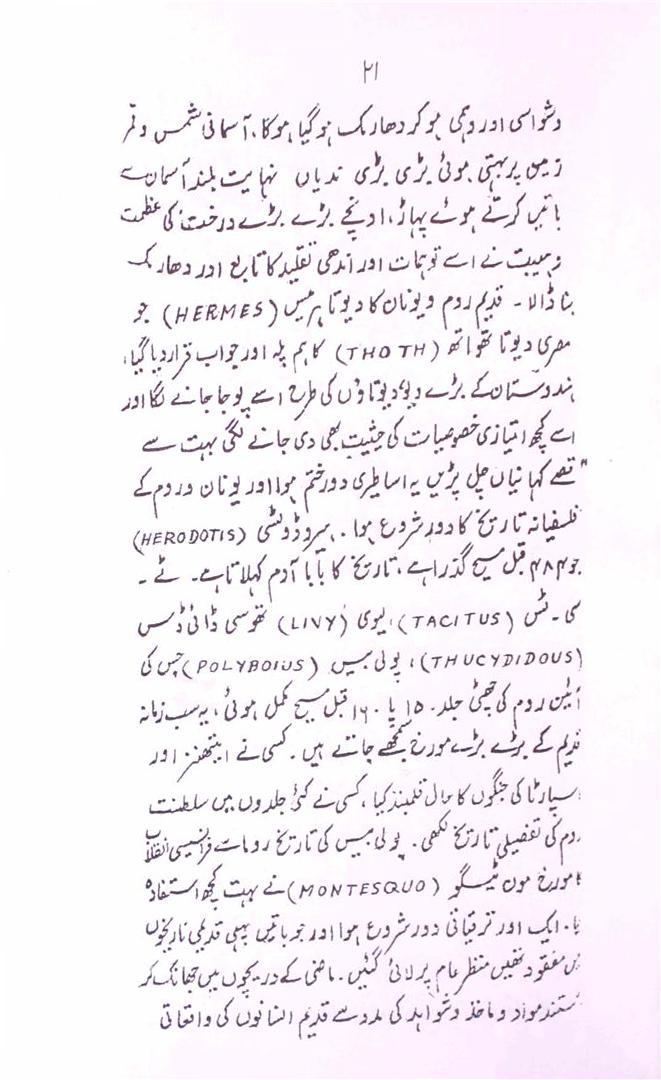 ۲۱
وشواسی اور وہمی ہو کر دھارمک ہو گیا ہوگا، آسمانی شمس و قمر
زمین پر بہتی ہوئی بڑی بڑی ندیاں نہایت بلند آسمان سے
باتیں کرتے ہوئے پہاڑ، اونچے بڑے بڑے درخت کی عظمت
و ہیبت نے اسے توہمات اور اندھی تقلید کا تابع اور دھارمک
بنا ڈالا۔ قدیم روم و یونان کا دیوتا ہرمیس (HERMES) جو
مصری دیوتا تھواتھ (THOTH) کا ہم پلہ اور جواب قرار دیا گیا،
ہندوستان کے بڑے دیوی دیوتاؤں کی طرح اسے پوجا جانے لگا اور
اسے کچھ امتیازی خصوصیات کی حیثیت بھی دی جانے لگی بہت سے
"قصے کہانیاں چل پڑیں یہ اساطیری دور ختم ہوا اور یونان و روم کے
فلسفیانہ تاریخ کا دور شروع ہوا۔ ہیروڈوٹس (HERODOTIS)
جو ۴۸۴ قبل مسیح گذرا ہے، تاریخ کا بابا آدم کہلاتا ہے۔ ٹے۔
سی۔ٹس (TACITUS)، لیوی (LIVY) تھوسی ڈائی ڈس
(THUCYDIDOUS)، پولی بیس (POLYBOIUS) جس کی
آئین روم کی چھٹی جلد۔ ۱۵۰ یا ۱۶۰ قبل مسیح مکمل ہوئی، یہ سب زمانہ
قدیم کے بڑے بڑے مورخ سمجھے جاتے ہیں۔ کسی نے ایتھنز اور
سپارٹا کی جنگوں کا حال قلمبند کیا، کسی نے کئی جلدوں میں سلطنت
روم کی تفصیلی تاریخ لکھی۔ پولی بیس کی تاریخ روما سے فرانسیسی انقلاب
کا مورخ مون ٹیسگو (MONTESQUO) نے بہت کچھ استفادہ
یا۔ ایک اور ترقیاتی دور شروع ہوا اور جو باتیں پہلی قدیمی تاریخوں
میں مفقود تھیں منظر عام پر لائی گئیں۔ ماضی کے دریچوں میں جھانک کر
مستند مواد و ماخذ و شواہد کی مدد سے قدیم انسانوں کی واقعاتی